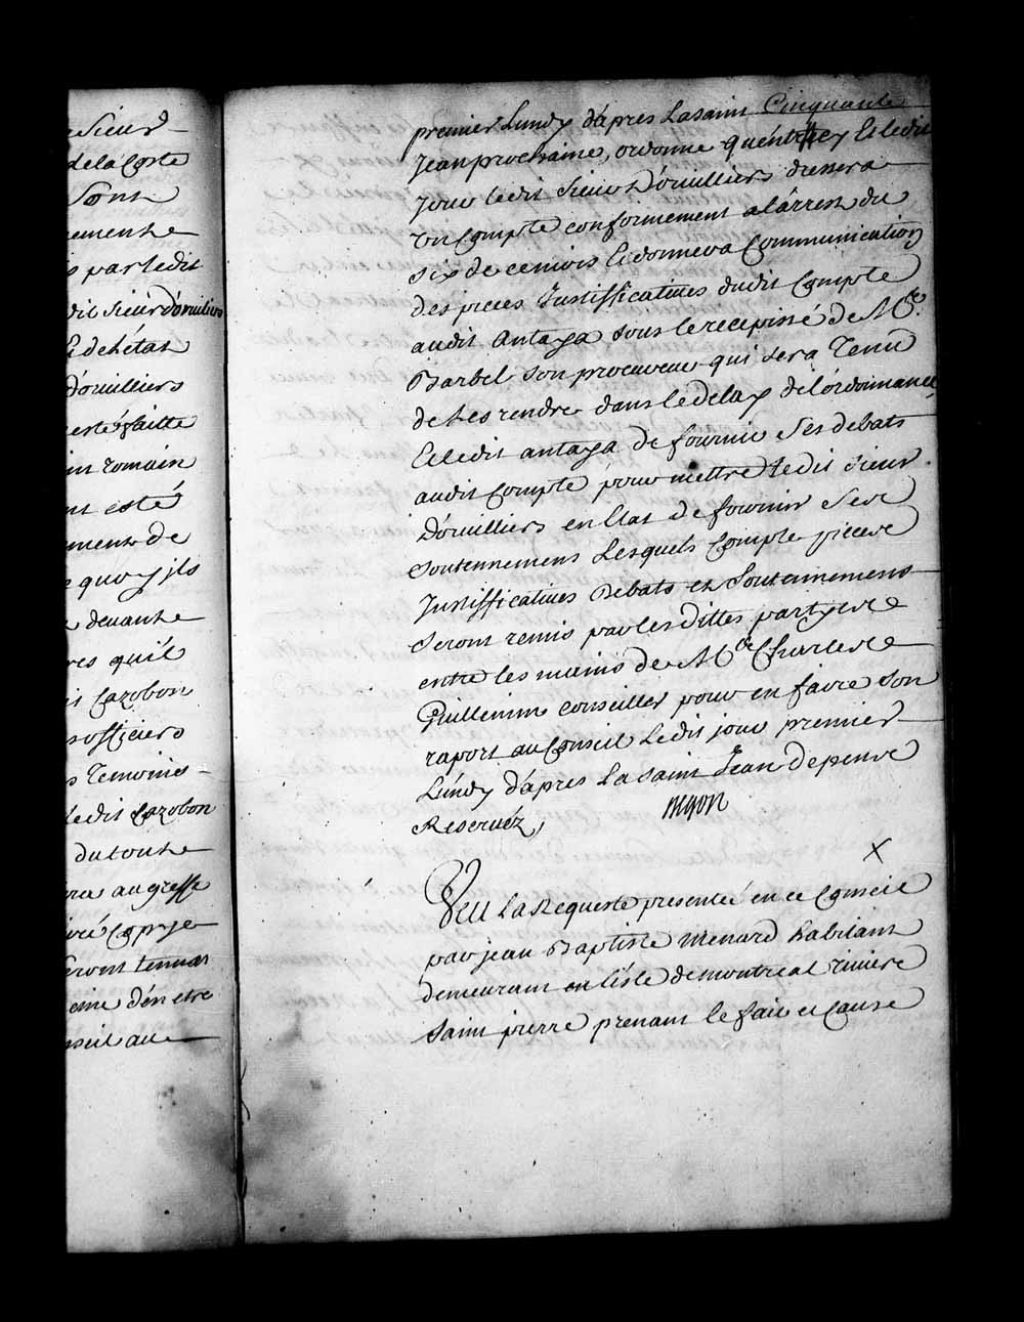 e Sieur
de la Coste
Sont
ement
s par ledit
dit Sieur d'orvilliers
de létat
D'orvilliers
esté faitte
in romain
nt esté
ment de
quoy jls
devant
res quil
Cazobon
officiers
s Temoins
ledit Cazobon
du tout
au greffe
Copye
seront tenus
eine d'en etre
seil au
Cinquante
premier Lundy d'apres La saint
Jean prochaine, ordonne qu'entre cy Et ledit
Jour ledit Sieur D'orvilliers dressera
Un Compte conformement a lârrest du
Six de ce mois Et donnera Communication
des pieces Justifficatives dudit Compte
audit Antaya sous le recepissé de Me.
Barbel son procureur qui sera Tenu
de Les rendre dans le delay de l'ordonnance,
Et ledit antaya de fournir Ses debats
audit Compte pour mettre Ledit Sieur
D'orvilliers en Etat de fournir Ses
Soutennemens Lesquels Compte pieces
Justifficatives Debats et Soutennemens
Seront remis par les dittes partyes
entre les mains de Me Charles
Guillimin Conseiller pour en faire Son
raport au Conseil Ledit jour premier
Lundy d'apres La saint Jean depens
Reservéz,
Begon
X
Veu La Requeste presentée en ce Conseil
par jean Baptiste menard habitant
demeurant en L'isle de montreal riviere
Saint pierre prenant le fait et Cause